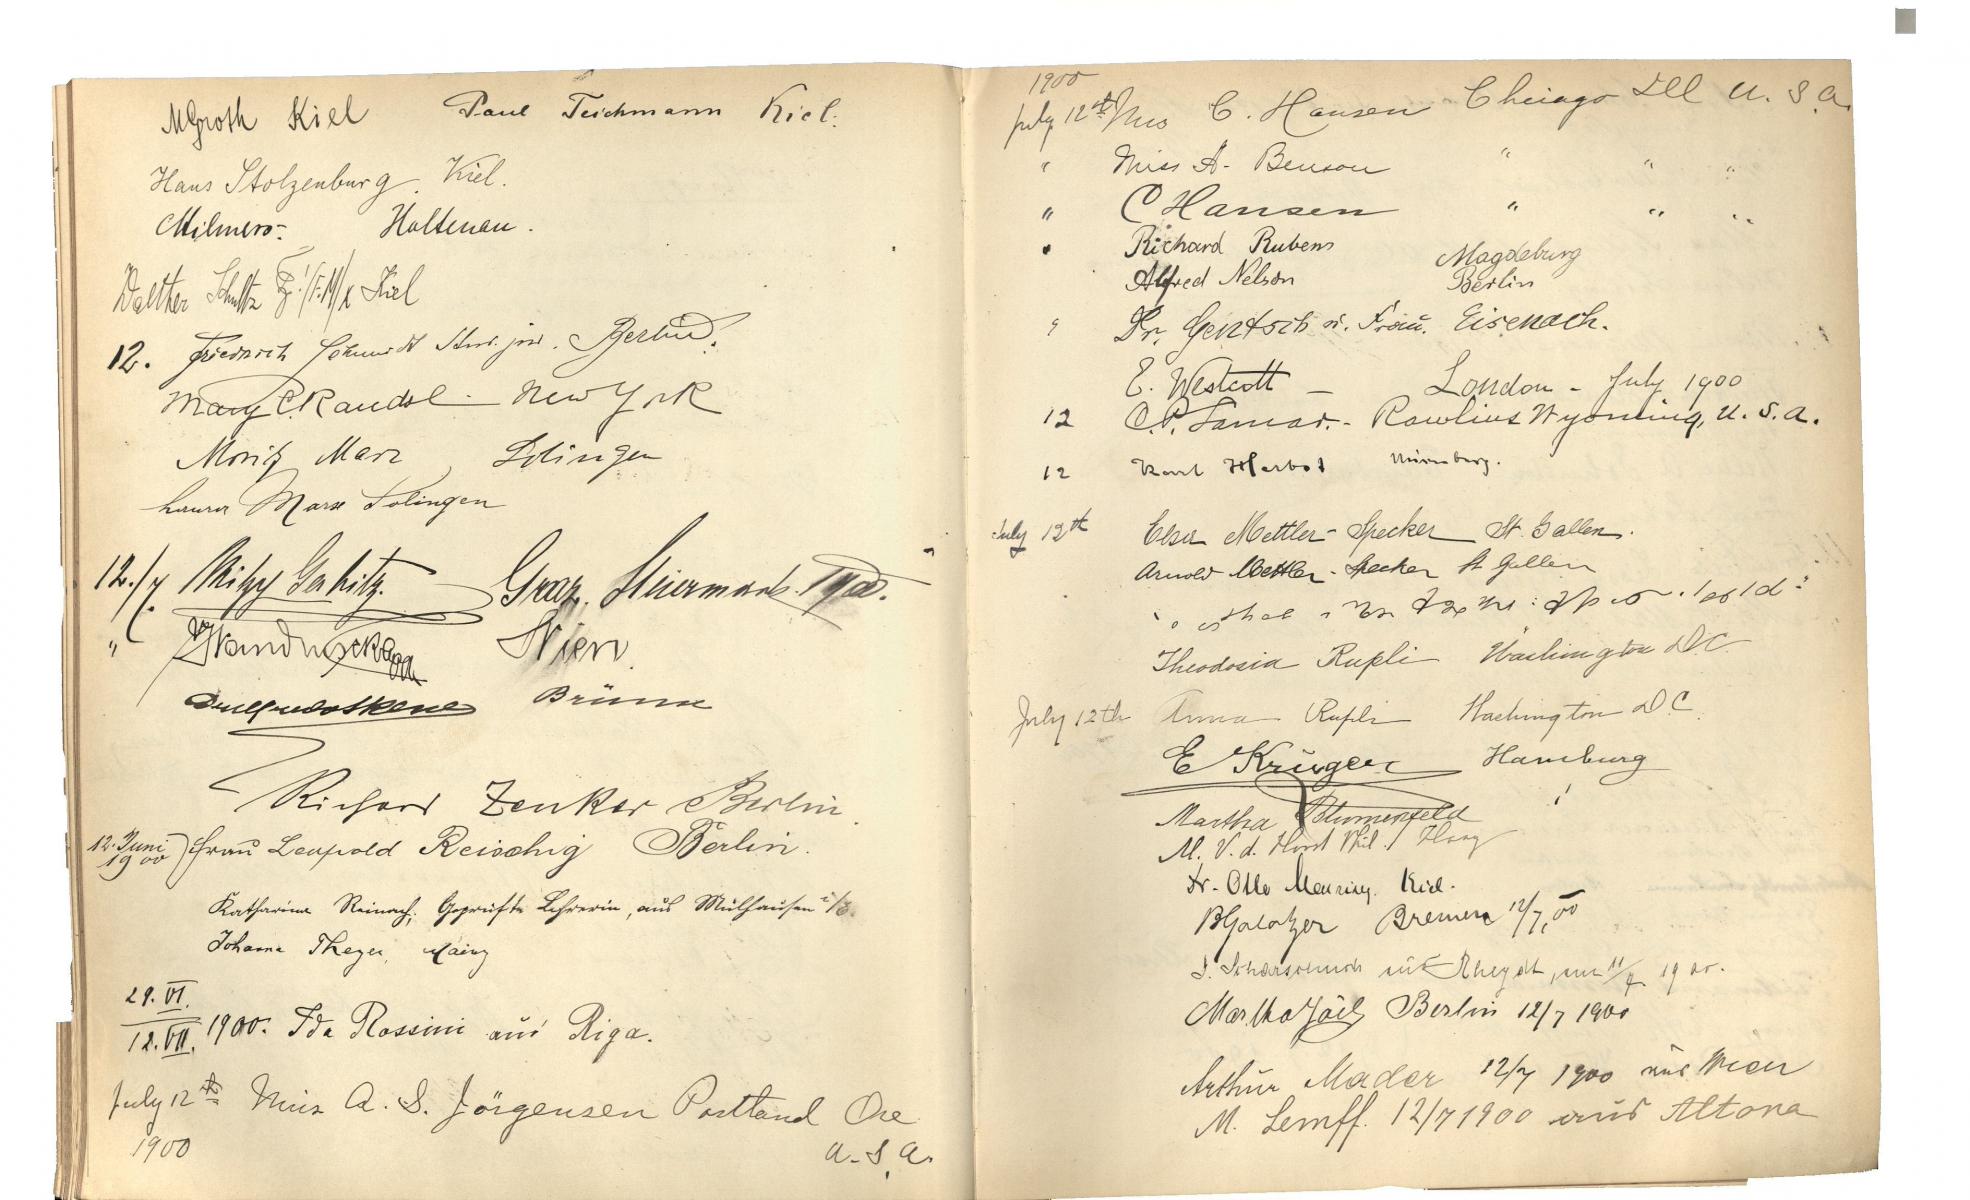 MGroth Kiel Paul Teichmann Kiel.
Hans Stolzenburg. Kiel.
Holtenau.
Walther Schultz Kiel
12. Friedrich Schmidt Berlin.
Mary C. Randol - New York
Moritz Marx, Solingen
Laura Marx Solingen
12./7. Graz, Steiermark. 1900.
" Wien
Brünn
Richard Zenker Berlin.
12. Juni 1900) Frau Leopold Reischig Berlin.
Katharina Reinach, Geprüfte Lehrerin, aus Mülhausen i/E.
Johanna Theyer, Mainz
29. VI.
12. VII. 1900. Ida Rossini aus Riga.
July 12th Miss A. S. Jörgensen Portland Ore
1900 U.S.A.
1900
July 12th Mrs C. Hansen Chicago Ill U.S.A.
" Miss A. Benson " " "
" C Hansen " " "
" Richard Rubens Magdeburg
Alfred Nelson Berlin
" Dr. Gentsch u. Frau. Eisenach.
E. Westcott - London - July 1900
12 C.P. Lamar. - Rawlins Wyoming, U.S.A.
12 Karl Herbst Nürnberg.
July 12th Elsa Mettler-Specker St. Gallen.
Arnold Mettler-Specker St Gallen
Theodosia Rupli Washington D.C.
July 12th Anna Rupli Washington D.C.
E Krüger Hamburg
Martha Blumenfeld "
M. V. d. Horst Haag
Dr. Otto Mensing. Kiel.
Bremen 12/7. 00
aus Rheydt, am 11/7 1900.
Martha Joël Berlin 12/7 1900
Arthur Mader 12/7 1900 aus Wien
M. 12/7 1900 aus Altona